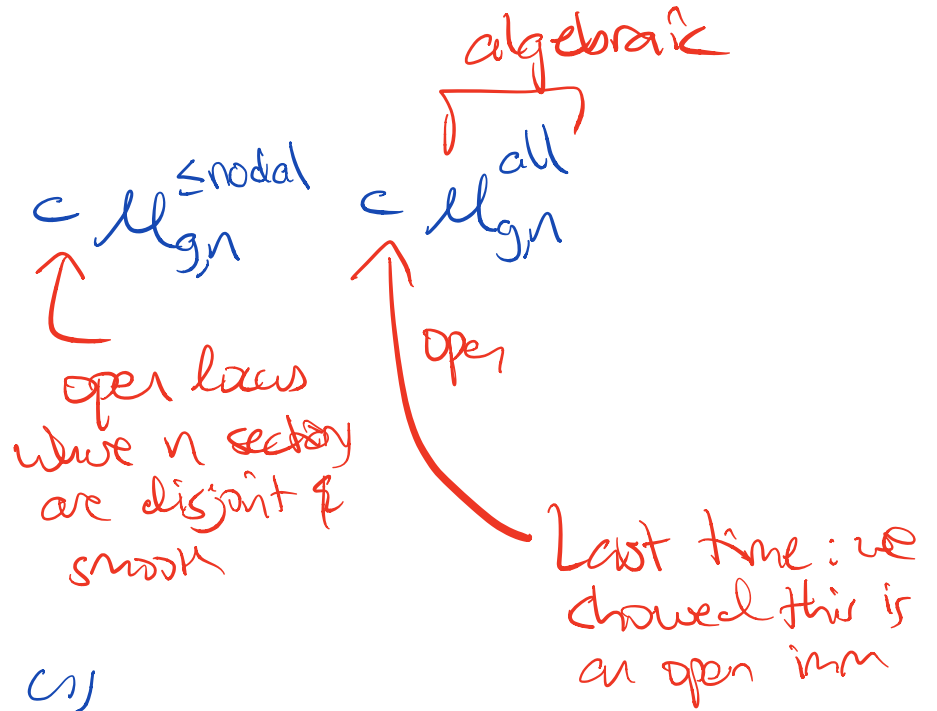 algebraic
⊂ M_{g,n}^{≤nodal} ⊂ M_{g,n}^{all}
open
open locus
where n sections
are disjoint &
smooth
Last time: we
showed this is
an open imm